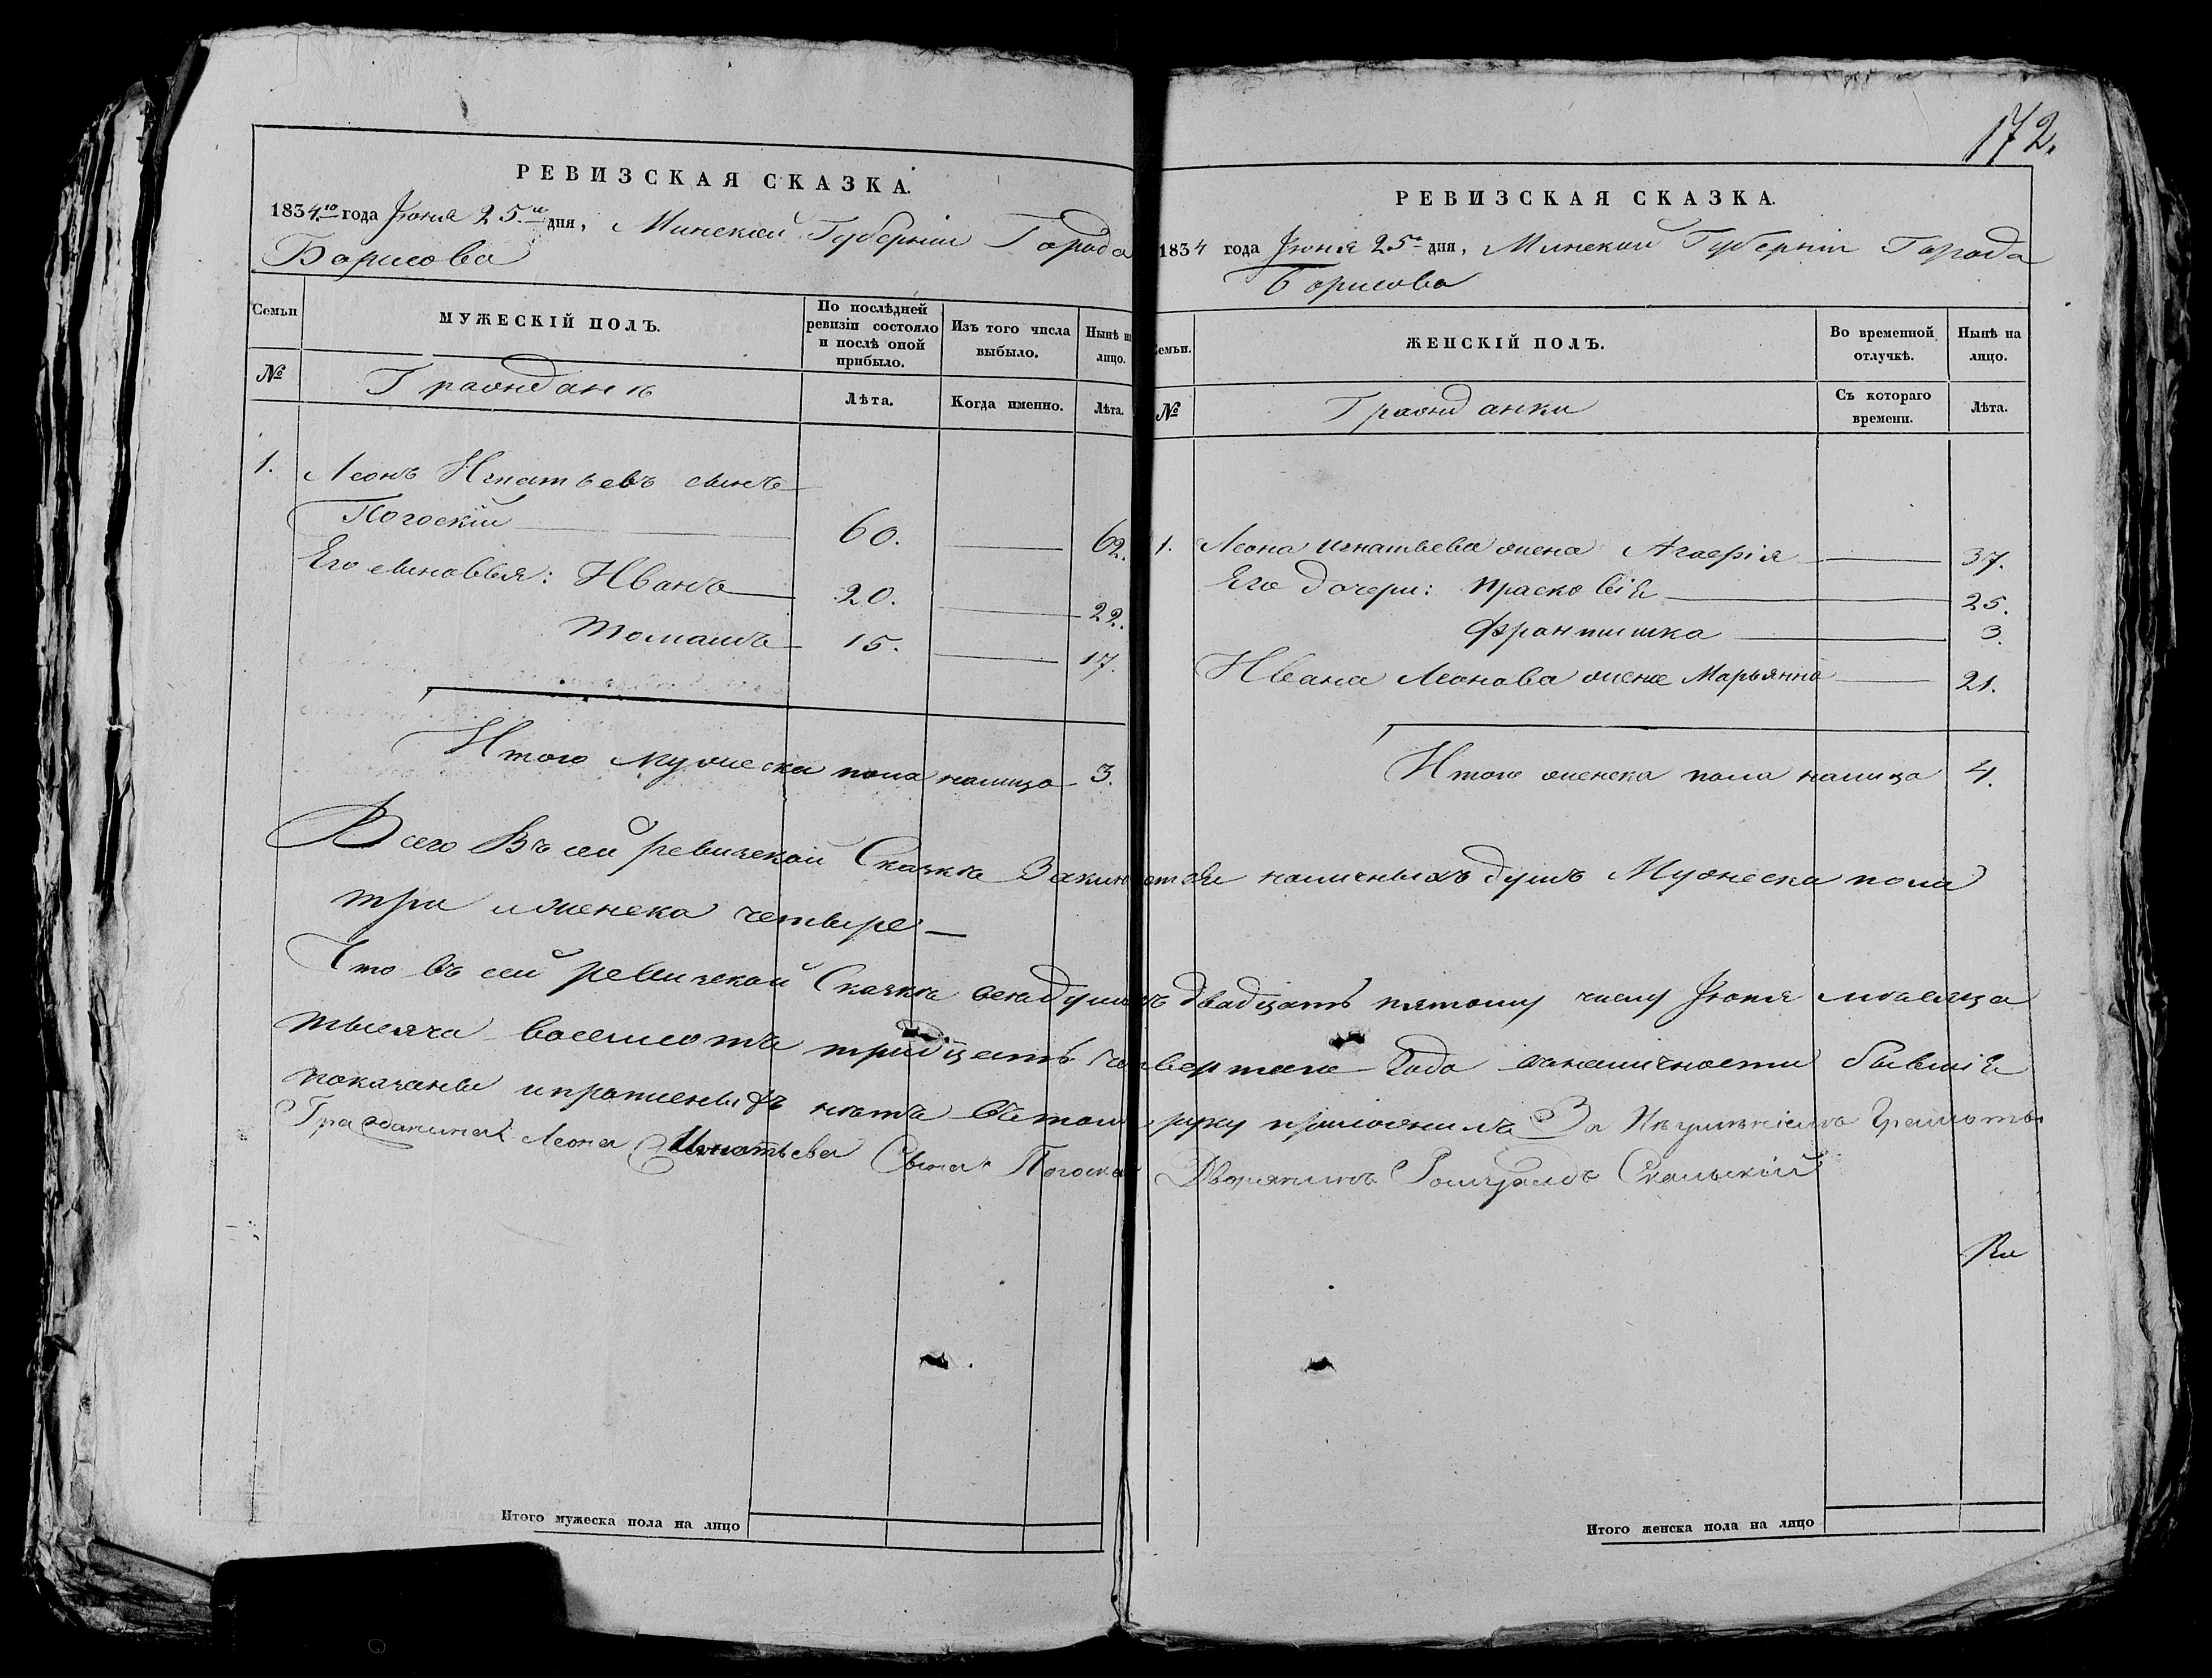 РЕВИЗСКАЯ СКАЗКА.
1834го года Июня 25го дня, Минской Губернии Города
Борисова
Семьи
МУЖЕСКІЙ ПОЛЪ.
По послѣдней ревизіи состояло и послѣ оной прибыло.
Изъ того числа выбыло.
Нынѣ на лицо.
№
Гражданъ
Лѣта.
Когда именно.
Лѣта.
1.
Леонъ Игнатьевъ сынъ
Погоскій 60. 62.
Его сыновья: Иванъ 20. 22.
Томашъ 15. 17.
Итого мужеска пола налицо 3.
172.
РЕВИЗСКАЯ СКАЗКА.
1834 года Июня 25го дня, Минской Губерніи Города
Борисова
Семьи.
ЖЕНСКІЙ ПОЛЪ.
Во временной отлучкѣ.
Нынѣ на лицо.
№
Гражданки
Съ котораго времени.
Лѣта.
1. Леона Игнатьева жена Агафія 37.
Его дочери: Прасковія 25.
Франтишка 3.
Ивана Леонова жена Марьянна 21.
Итого женска пола налицо 4.
Всего въ сей ревизской Сказкѣ Заключается наличныхъ душъ Мужеска пола
три и женска четыре
Что въ сей ревизской Сказкѣ всѣ души къ двадцать пятому числу Июня мѣсяца
тысяча восемсотъ тридцать четвертаго Года въ наличности бывшія
показаны и прописныхъ нѣтъ въ томъ руку приложилъ За Неумѣніемъ Грамоты
Гражданина Леона Игнатьева Сына Погоска Дворянинъ Ромуалдъ Скальскій
Итого мужеска пола на лицо
Итого женска пола на лицо